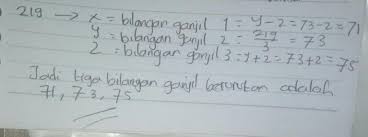 219 → x = bilangan ganjil 1 = y - 2 = 73 - 2 = 71
y = bilangan ganjil 2 = 219/3 = 73
z = bilangan ganjil 3 = y + 2 = 73 + 2 = 75
Jadi tiga bilangan ganjil berurutan adalah
71, 73, 75